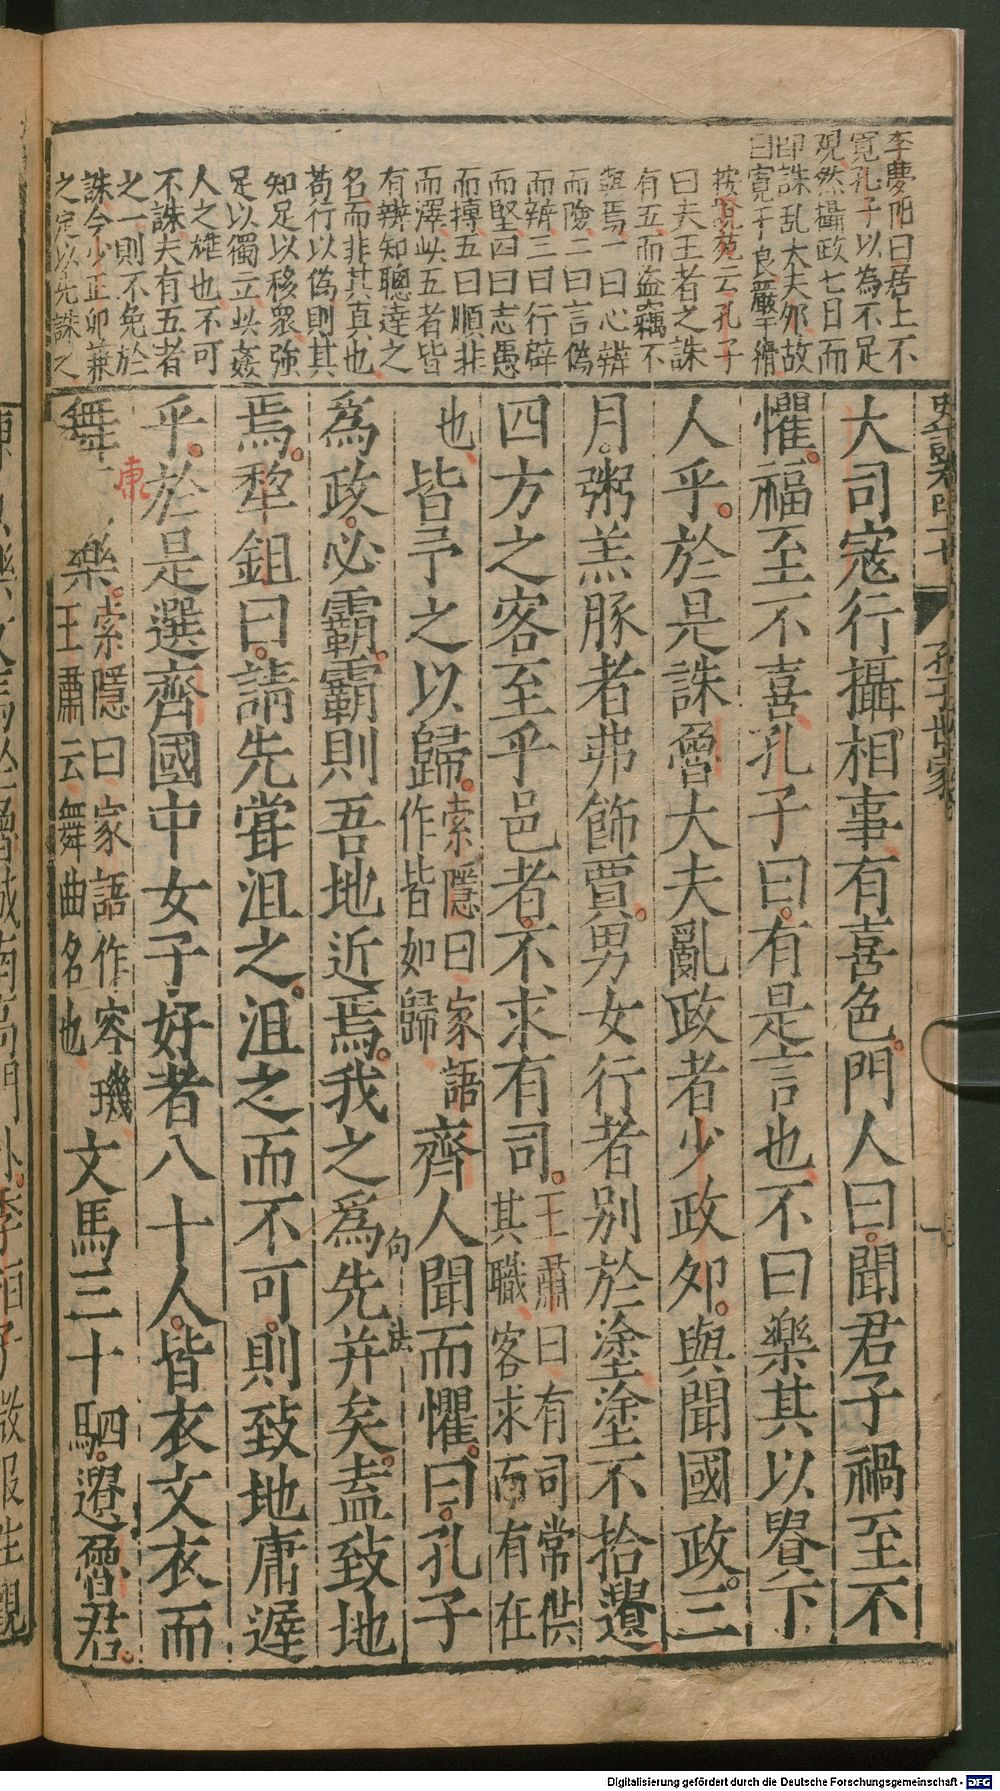 李夢阳曰居上不
寛孔子以為不足
观然攝政七日而
即誅乱大夫夘故
曰寛于良嚴于猾
按說苑云孔子
曰夫王者之誅
有五而盗竊不
與焉一曰心辨
而險二曰言偽
而辨三曰行辟
而堅四曰志愚
而摶五曰順非
而澤此五者皆
有辨知聰達之
名而非其真也
苟行以偽則其
知足以移眾強
足以獨立此姦
人之雄也不可
不誅夫有五者
之一則不免於
誅今少正卯兼
之定以先誅之
孔子世家
大司寇行攝相事有喜色門人曰聞君子禍至不
懼福至不喜孔子曰有是言也不曰樂其以貴下
人乎於是誅魯大夫亂政者少政夘與聞國政三
月粥羔豚者弗飾賈男女行者别於塗塗不拾遺
四方之客至乎邑者不求有司王肅曰有司常供其職客求而有在
也皆予之以歸索隱曰家語作皆如歸齊人聞而懼曰孔子
為政必霸霸則吾地近焉我之為先并矣盍致地
句法
焉犂鉏曰請先嘗沮之沮之而不可則致地庸遲
乎於是選齊國中女子好者八十人皆衣文衣而
舞康樂索隱曰家語作容璣王肅云舞曲名也文馬三十駟遺魯君
Digitalisierung gefördert durch die Deutsche Forschungsgemeinschaft - DFG